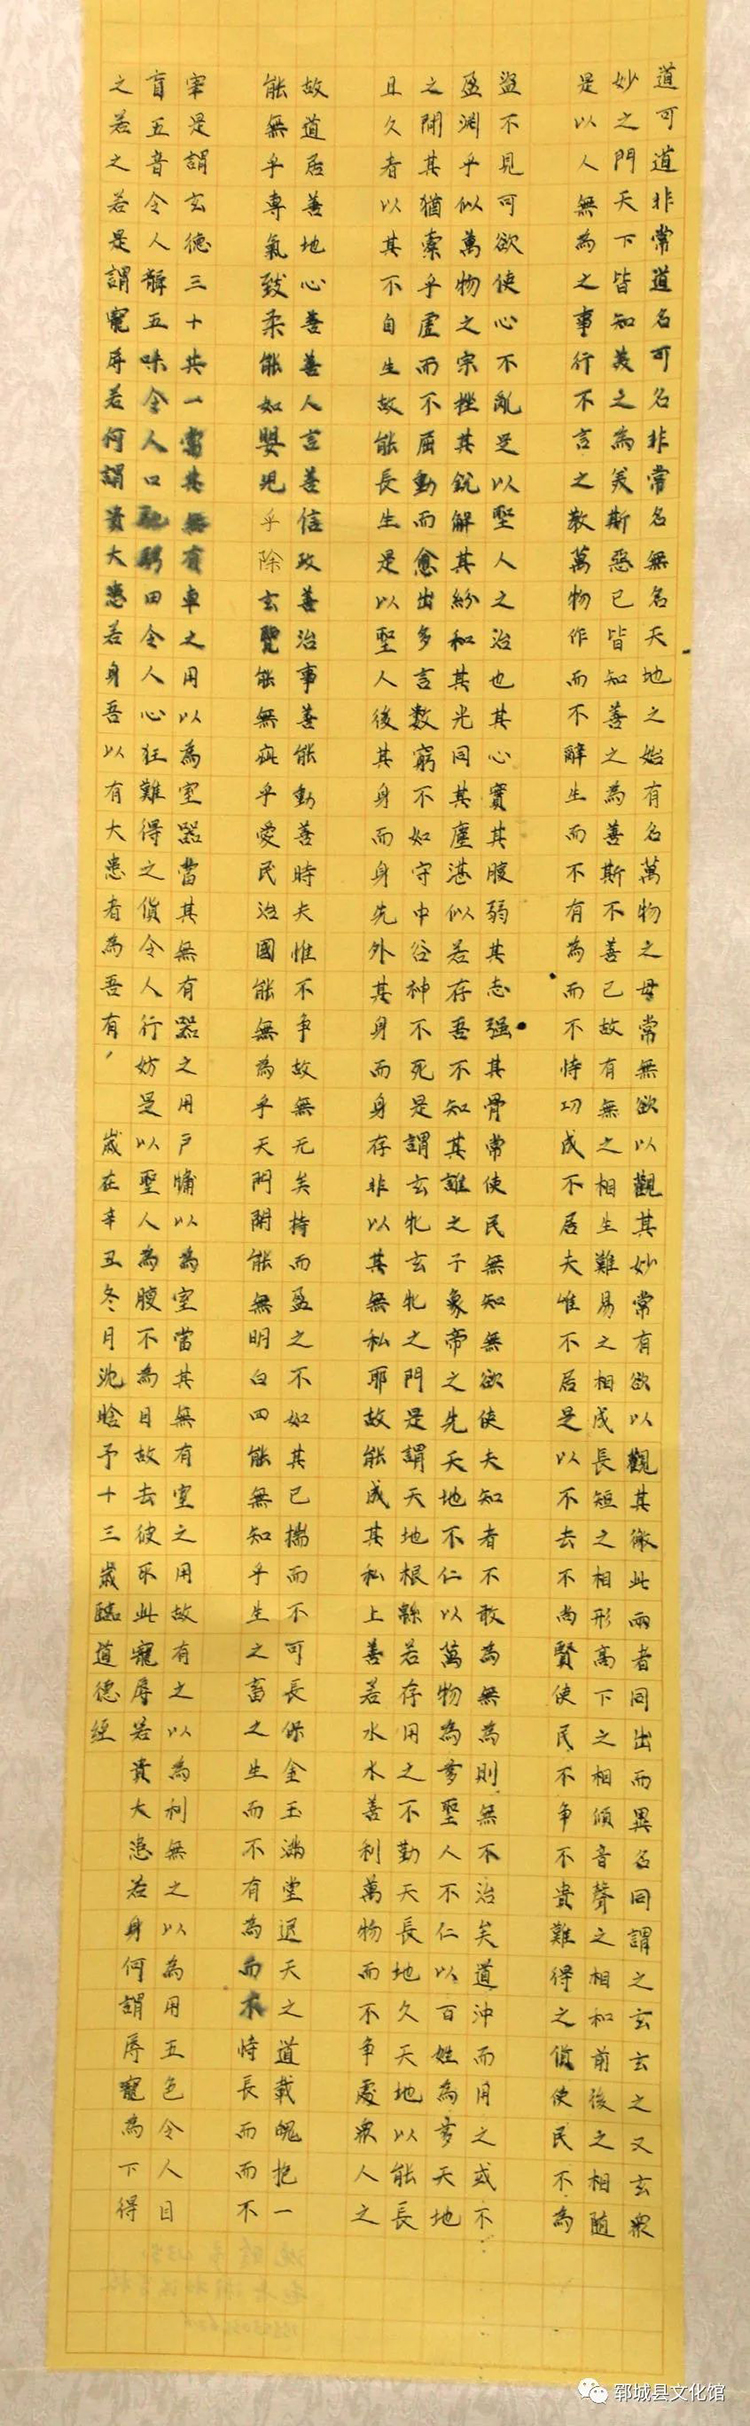 道可道非常道名可名非常名無名天地之始有名萬物之母常無欲以觀其妙常有欲以觀其徼此兩者同出而異名同謂之玄玄之又玄衆
妙之門天下皆知美之為美斯惡已皆知善之為善斯不善已故有無之相生難易之相成長短之相形高下之相傾音聲之相和前後之相隨
是以人無為之事行不言之教萬物作而不辭生而不有為而不恃功成不居夫惟不居是以不去不尚賢使民不争不貴難得之貨使民不為
盜不見可欲使心不亂是以聖人之治也其心實其腹弱其志强其骨常使民無知無欲使夫知者不敢為無為則無不治矣道沖而用之或不
盈渊乎似萬物之宗挫其銳解其紛和其光同其塵湛似若存吾不知其誰之子象帝之先天地不仁以萬物為芻聖人不仁以百姓為芻天地
之間其猶橐乎虛而不屈動而愈出多言數窮不如守中谷神不死是謂玄牝玄牝之門是謂天地根緜若存用之不勤天長地久天地以能長
且久者以其不自生故能長生是以聖人後其身而身先外其身而身存非以其無私耶故能成其私上善若水水善利萬物而不争處衆人之
故道居善地心善善人言善信政善治事善能動善時夫惟不争故無尤矣持而盈之不如其已揣而不可長保金玉滿堂退天之道載魄抱一
能無乎專氣致柔能如嬰児乎除玄覽能無疵乎愛民治國能無為乎天門開能無明白四能無知乎生之畜之生而不有為而不恃長而而不
宰是謂玄德三十共一當其無有車之用以為室器當其無有器之用戶牖以為室當其無有室之用故有之以為利無之以為用五色令人目
盲五音令人聾五味令人口馳騁田令人心狂難得之貨令人行妨是以聖人為腹不為目故去彼取此寵辱若貴大患若身何謂辱寵為下得
之若之若是謂寵辱若何謂貴大患若身吾以有大患者為吾有，歲在辛丑冬月沈晗予十三歲臨道德經
郓城县文化馆